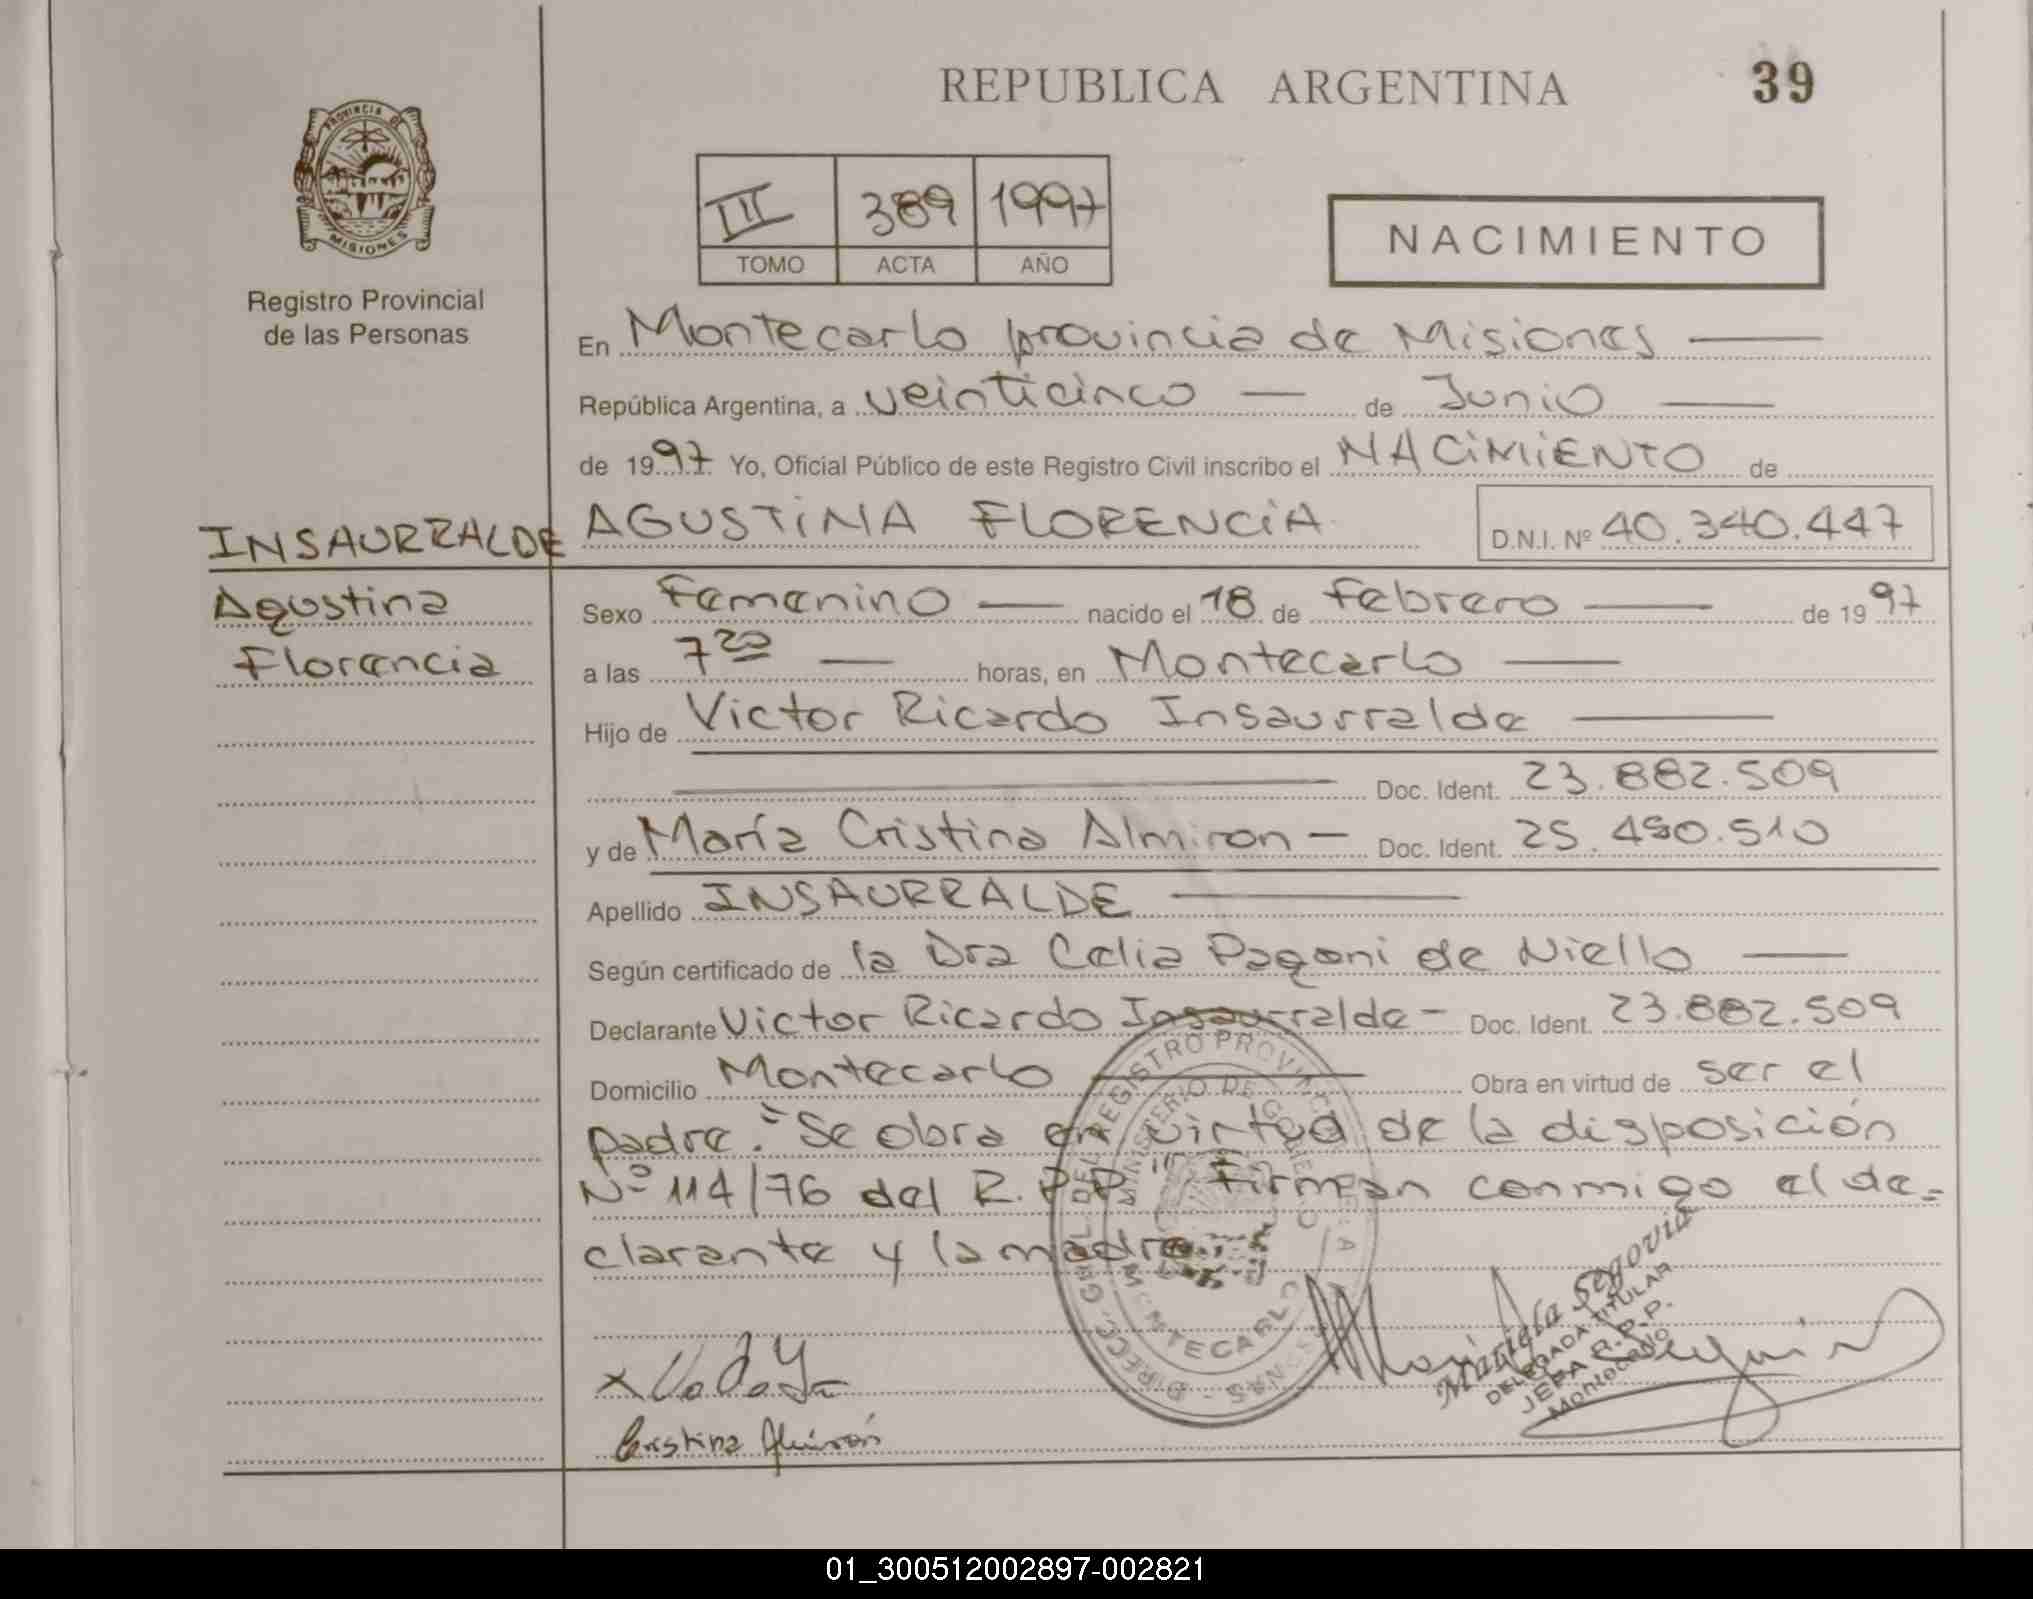 REPUBLICA ARGENTINA 39
PROVINCIA DE MISIONES
Registro Provincial
de las Personas
III 389 1997
TOMO ACTA AÑO
NACIMIENTO
En Montecarlo provincia de Misiones
República Argentina, a veinticinco de Junio
de 1997 Yo, Oficial Público de este Registro Civil inscribo el NACIMIENTO de
INSAURRALDE AGUSTINA FLORENCIA D.N.I. Nº 40.340.447
Agustina
Florencia
Sexo Femenino nacido el 18 de Febrero de 1997
a las 7 20 horas, en Montecarlo
Hijo de Victor Ricardo Insaurralde
Doc. Ident. 23.882.509
y de María Cristina Almiron Doc. Ident. 25.490.510
Apellido INSAURRALDE
Según certificado de la Dra Celia Pagani de Niello
Declarante Victor Ricardo Insaurralde Doc. Ident. 23.882.509
Domicilio Montecarlo Obra en virtud de ser el
padre. "Se obra en virtud de la disposición
Nº 114/76 del R.P.P." Firman conmigo el de-
clarante y la madre
DIRECC. GRAL. DEL REGISTRO PROVINCIAL DE LAS PERSONAS
MINISTERIO DE GOBIERNO
MONTECARLO
Mariela Segovia
DELEGADA TITULAR
JEFA R.P.P.
Montecarlo
Cristina Almirón
01_300512002897-002821